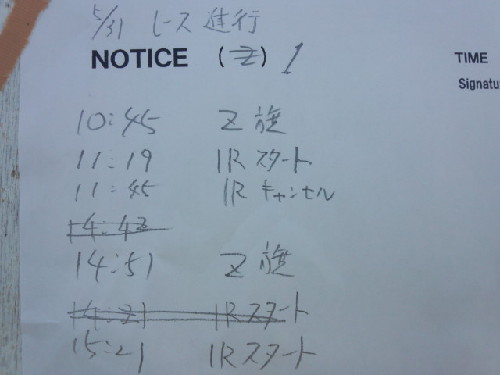 5/31 レース進行
NOTICE (Z) 1
TIME
Signatu
10:45 Z旗
11:19 1Rスタート
11:45 1Rキャンセル
14:42
14:51 Z旗
14:21 1Rスタート
15:21 1Rスタート